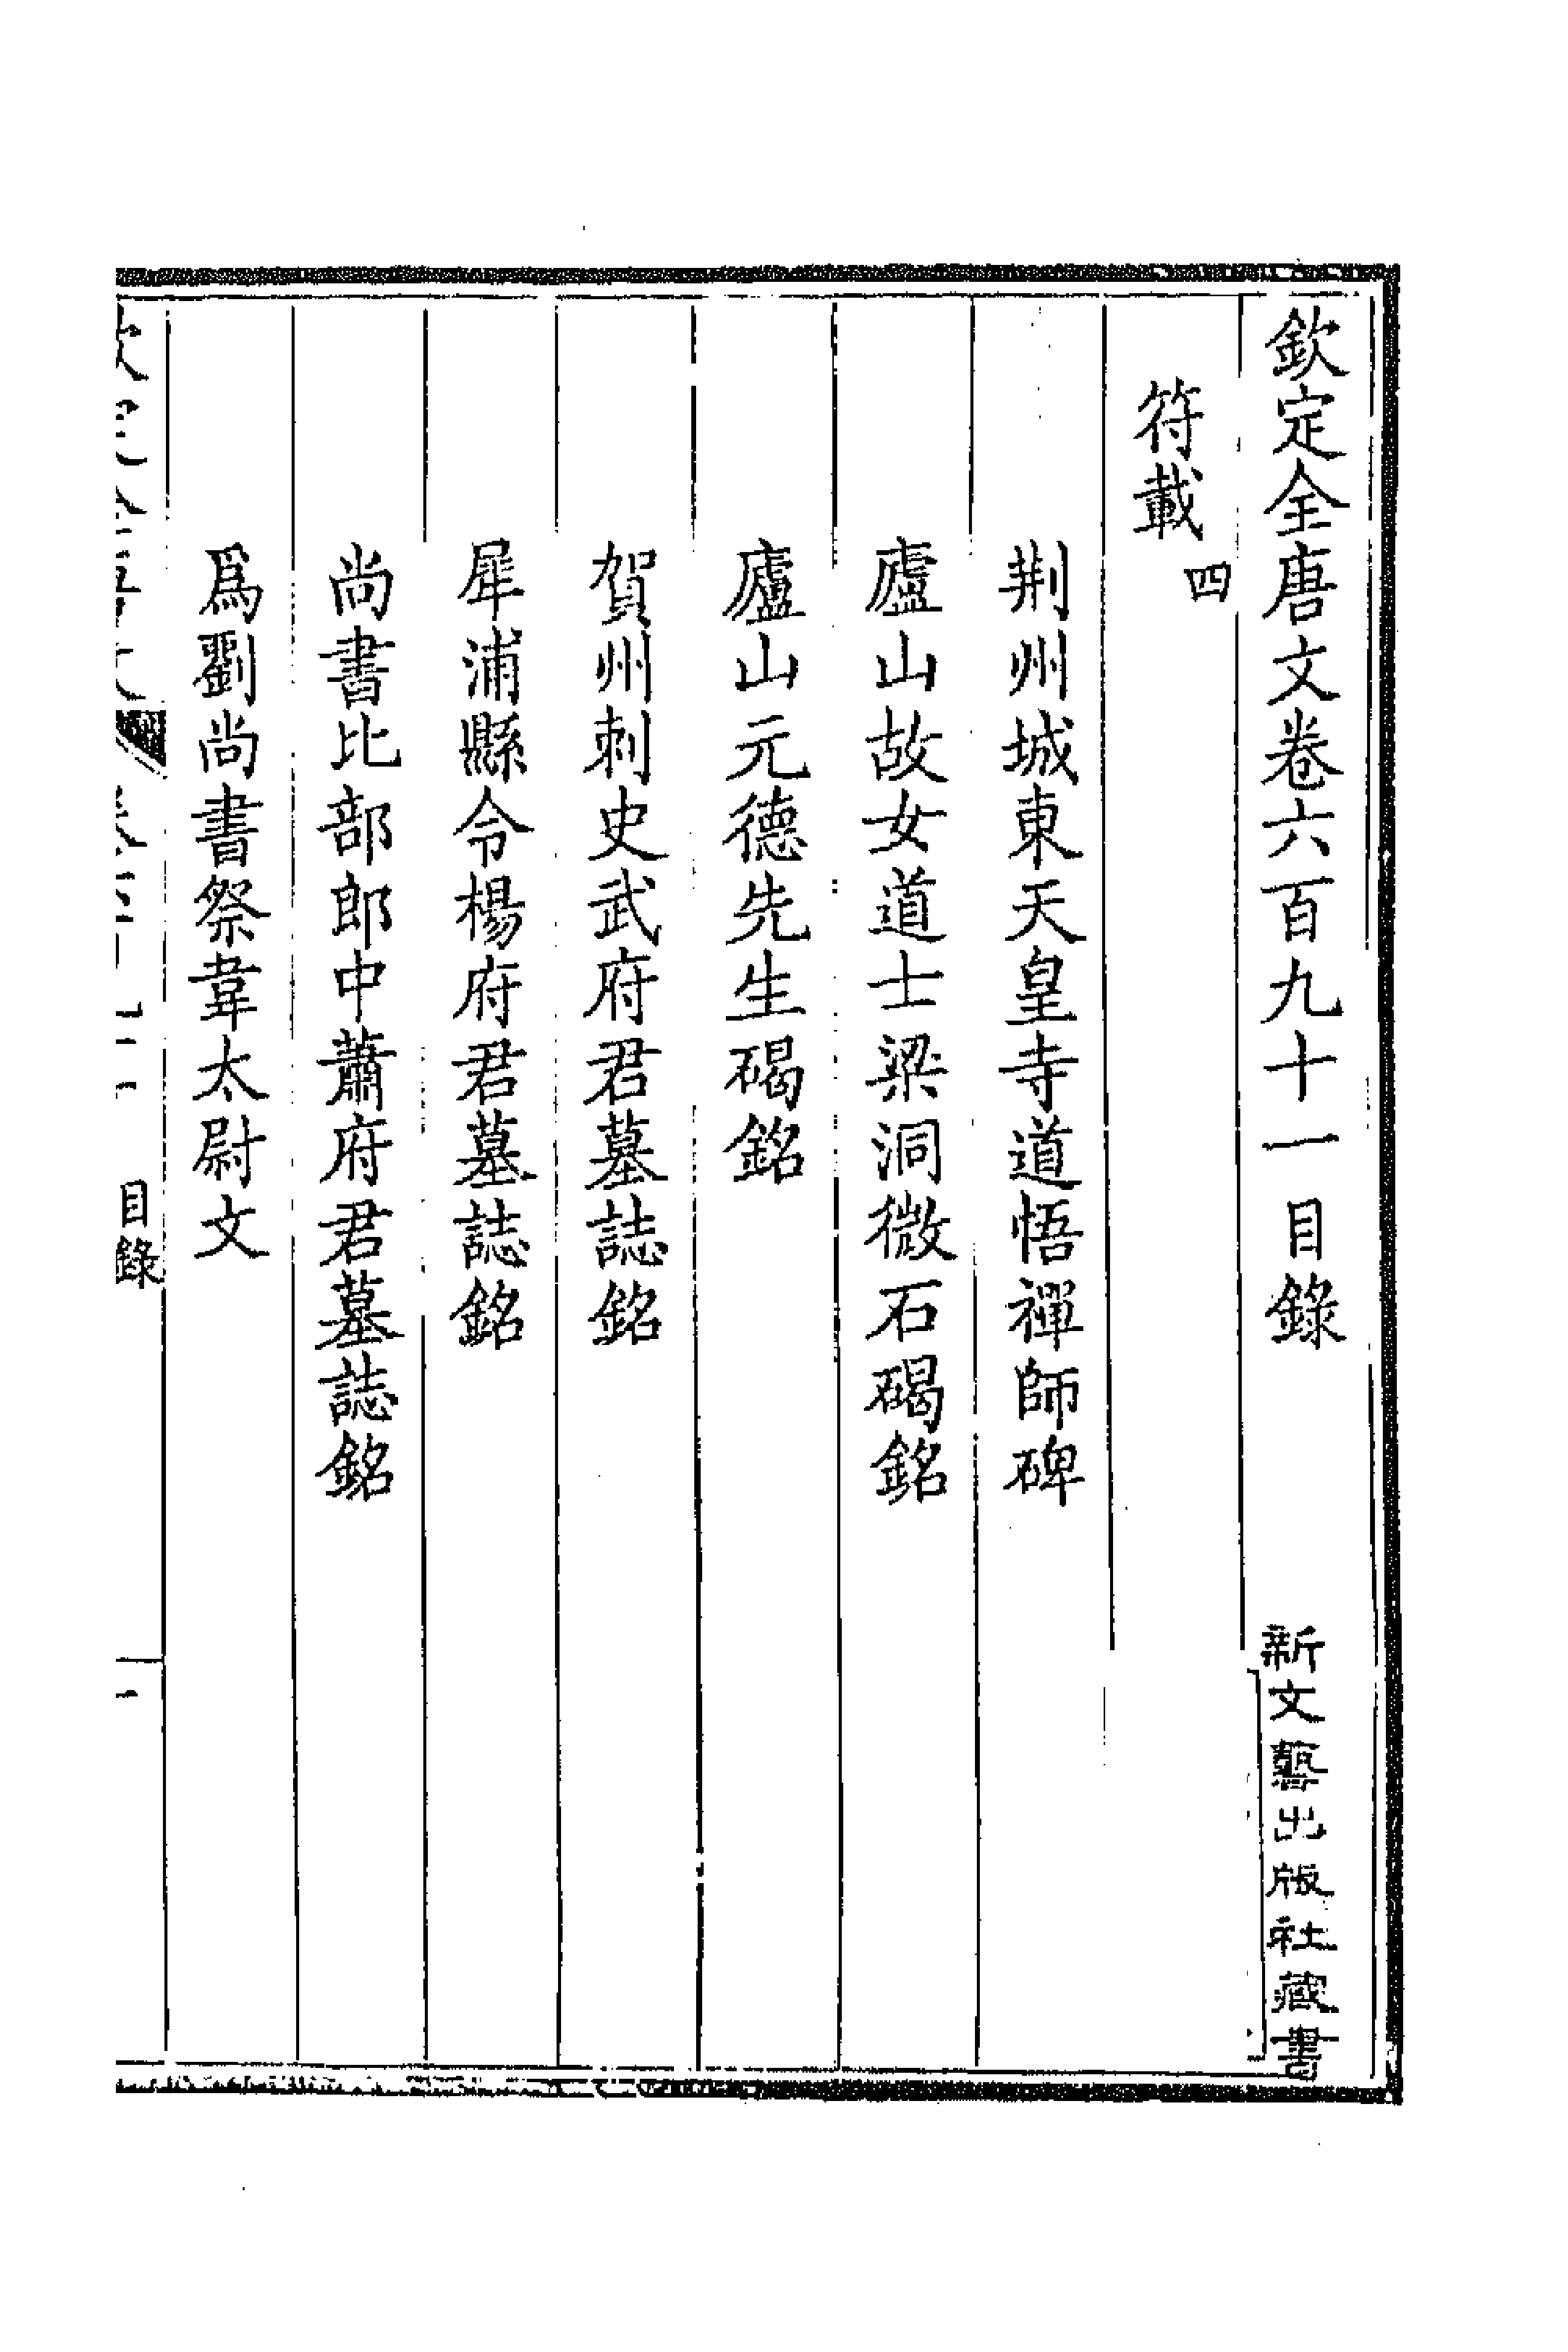 欽定全唐文卷六百九十一目錄
新文藝出版社藏書
符載四
荆州城東天皇寺道悟禪師碑
廬山故女道士梁洞微石碣銘
廬山元德先生碣銘
賀州刺史武府君墓誌銘
犀浦縣令楊府君墓誌銘
尚書比部郎中蕭府君墓誌銘
爲劉尚書祭韋太尉文
目錄